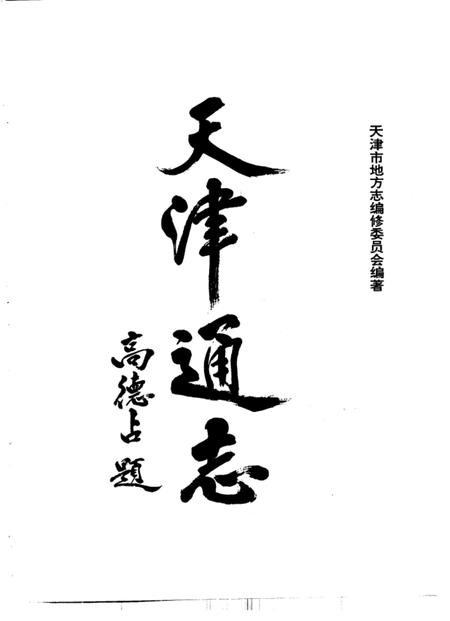 天津市地方志编修委员会编著
天津通志
高德占题